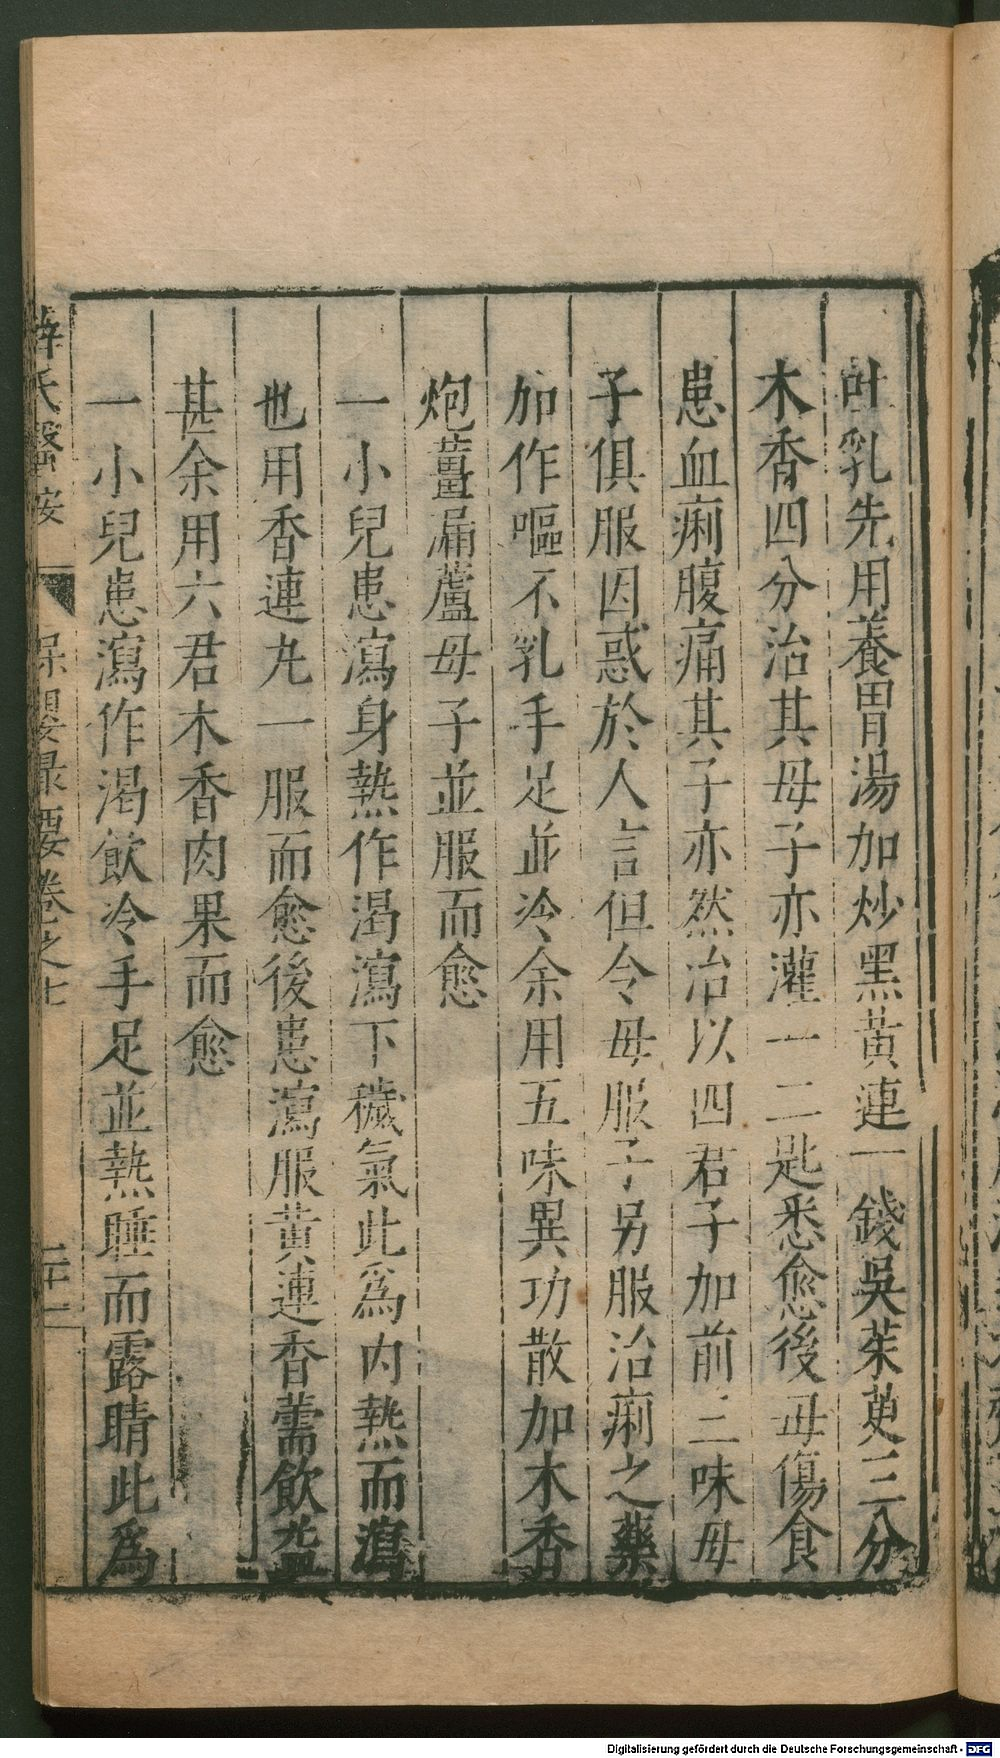 吐乳先用養胃湯加炒黑黃連一錢吳茱萸三分
木香四分治其母子亦灌一二匙悉愈後毋傷食
患血痢腹痛其子亦然治以四君子加前三味母
子俱服因惑於人言但令毋服子另服治痢之藥
加作嘔不乳手足並冷余用五味異功散加木香
炮薑漏蘆母子並服而愈
一小兒患瀉身熱作渴瀉下穢氣此為內熱而瀉
也用香連丸一服而愈後患瀉服黃連香薷飲益
甚余用六君木香肉果而愈
一小兒患瀉作渴飲冷手足並熱睡而露睛此為
薛氏醫按 保嬰最要卷之七 二十二
Digitalisierung gefördert durch die Deutsche Forschungsgemeinschaft - DFG